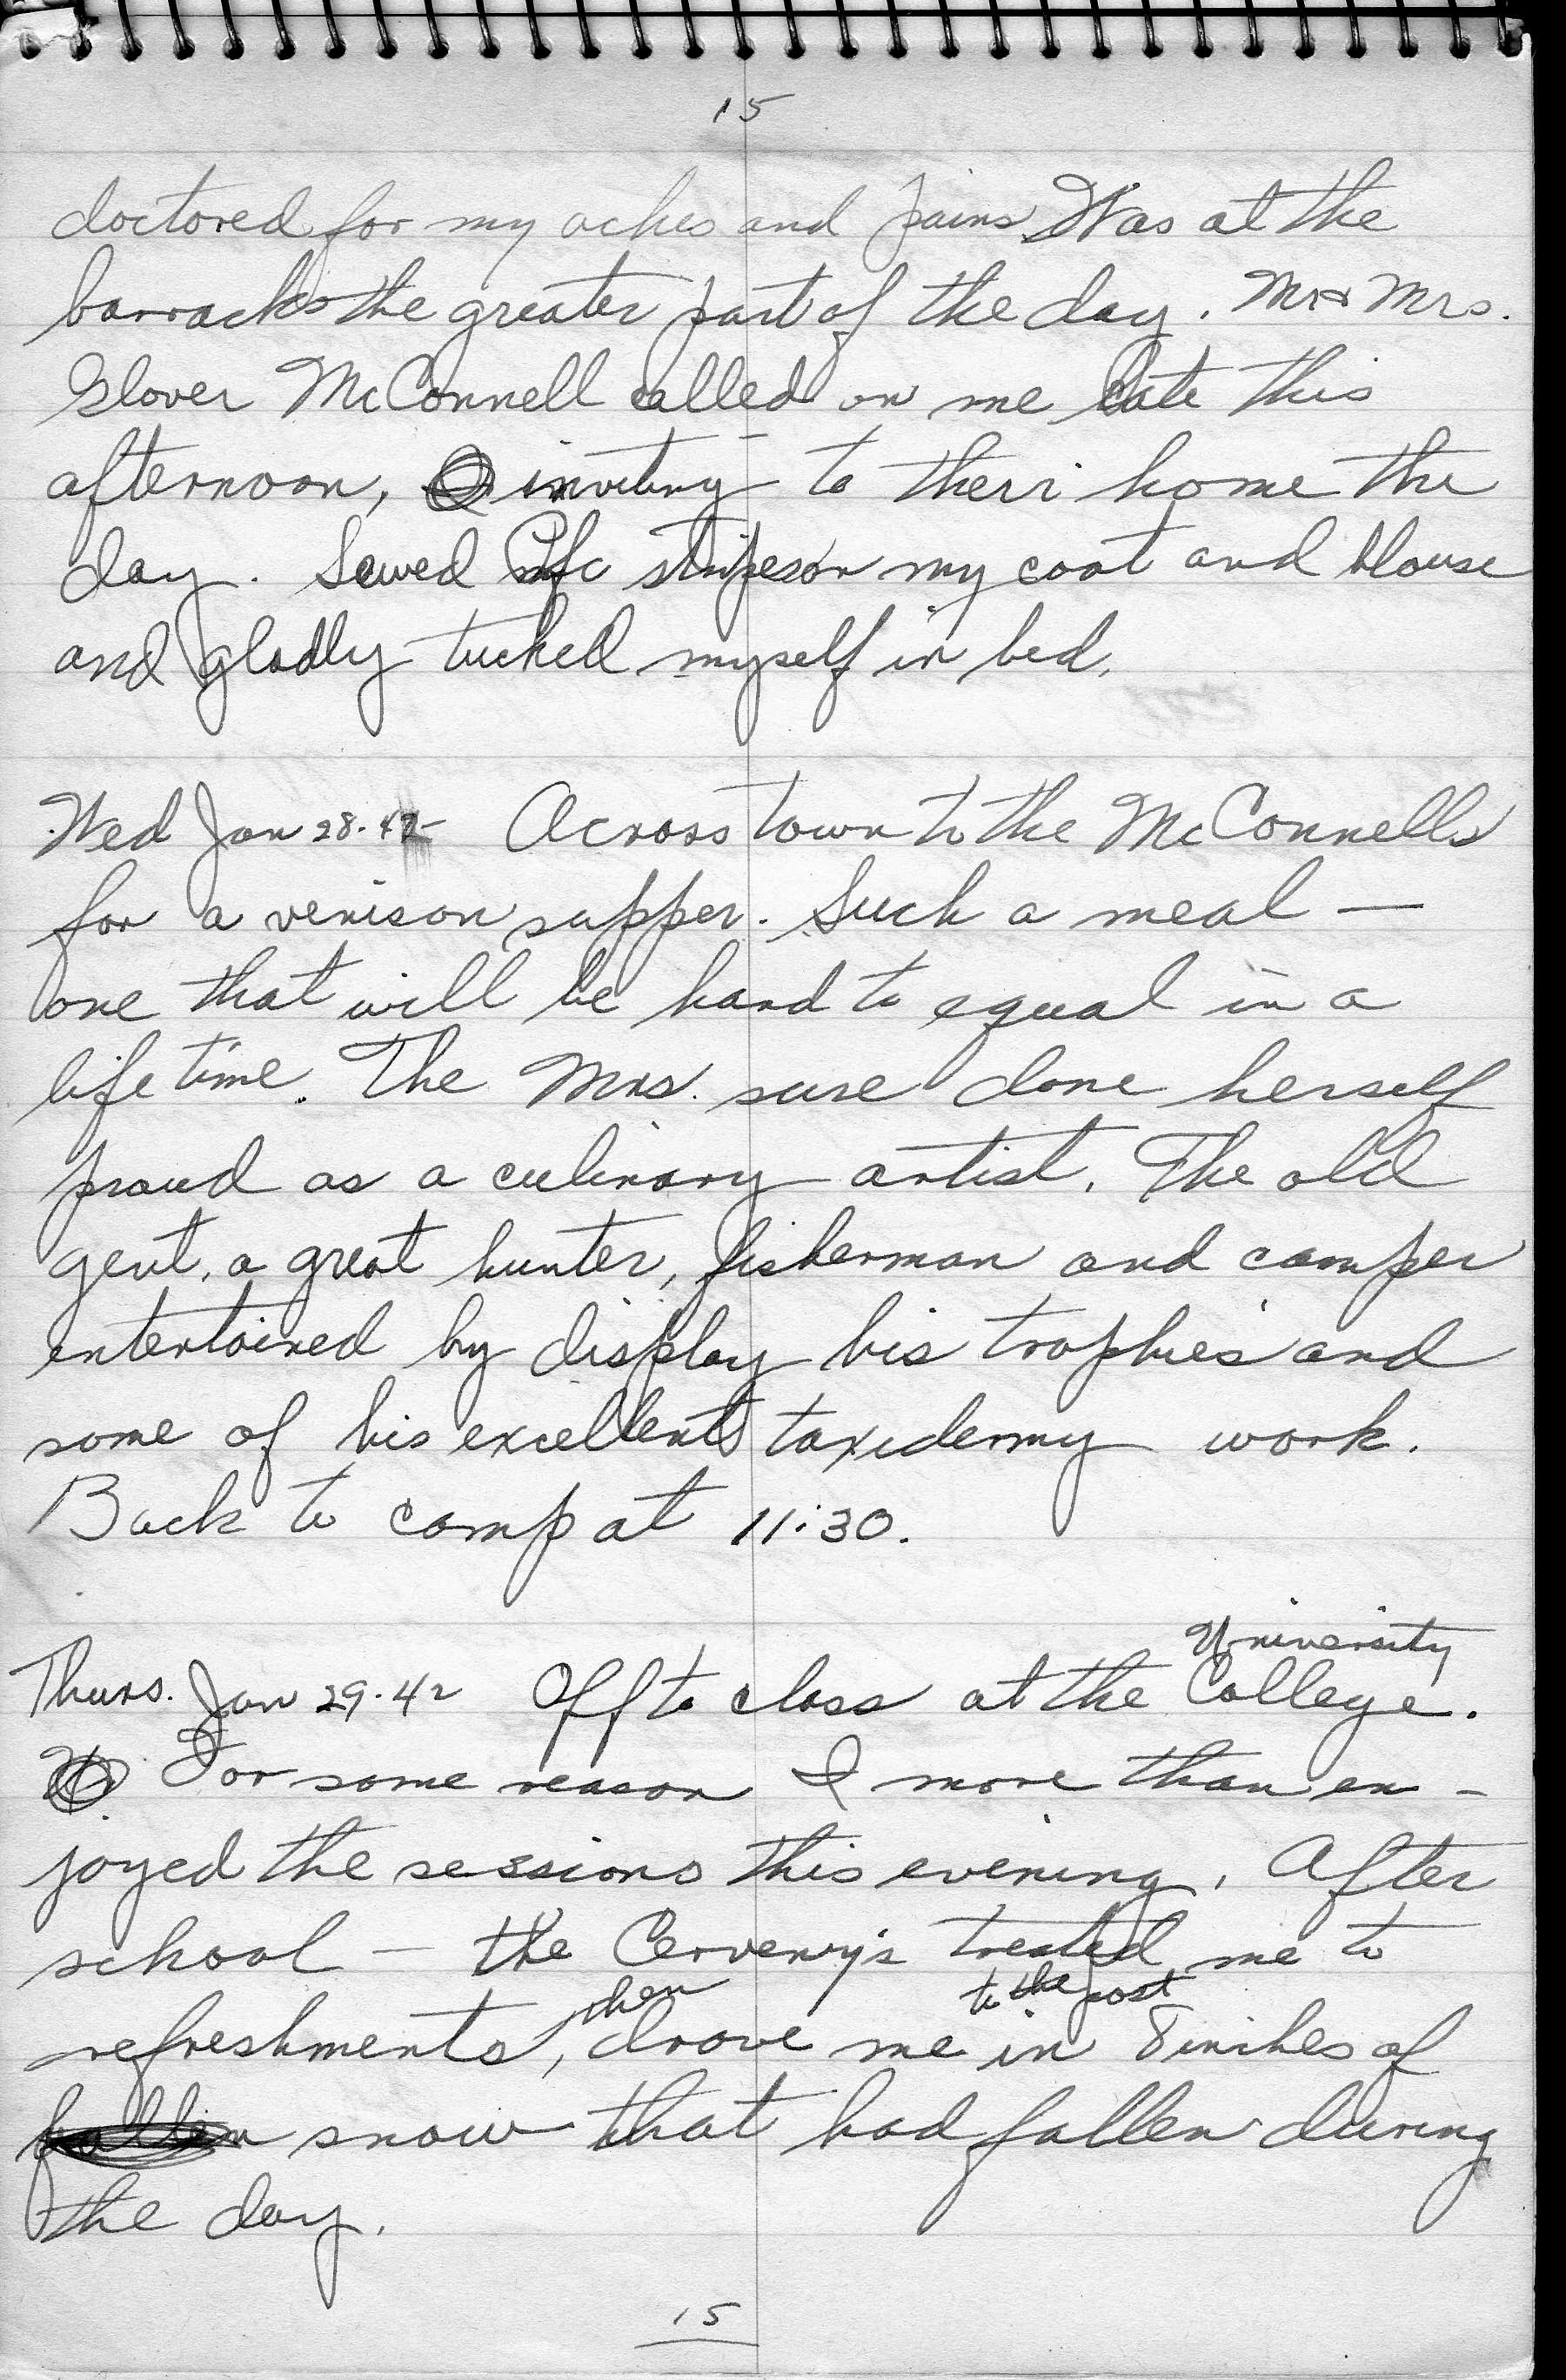 15
doctored for my aches and pains Was at the
barracks the greater part of the day. Mr & Mrs.
Glover McConnell called on me late this
afternoon, inviting to theri home the
day. Sewed Pfc stripes on my coat and blouse
and gladly tucked myself in bed.
Wed Jan 28.42 Across town to the McConnells
for a venison supper. Such a meal —
one that will be hard to equal in a
life time. The Mrs. sure done herself
proud as a culinary artist. The old
gent, a great hunter, fisherman and camper
entertained by display his trophies and
some of his excellent taxidermy work.
Back to camp at 11:30.
University
Thurs. Jan 29.42 Off to class at the College.
For some reason I more than en-
joyed the sessions this evening. After
school — the Cerveny's treated me to
then to the post
refreshments, drove me in 8 inches of
fallen snow that had fallen during
the day.
15